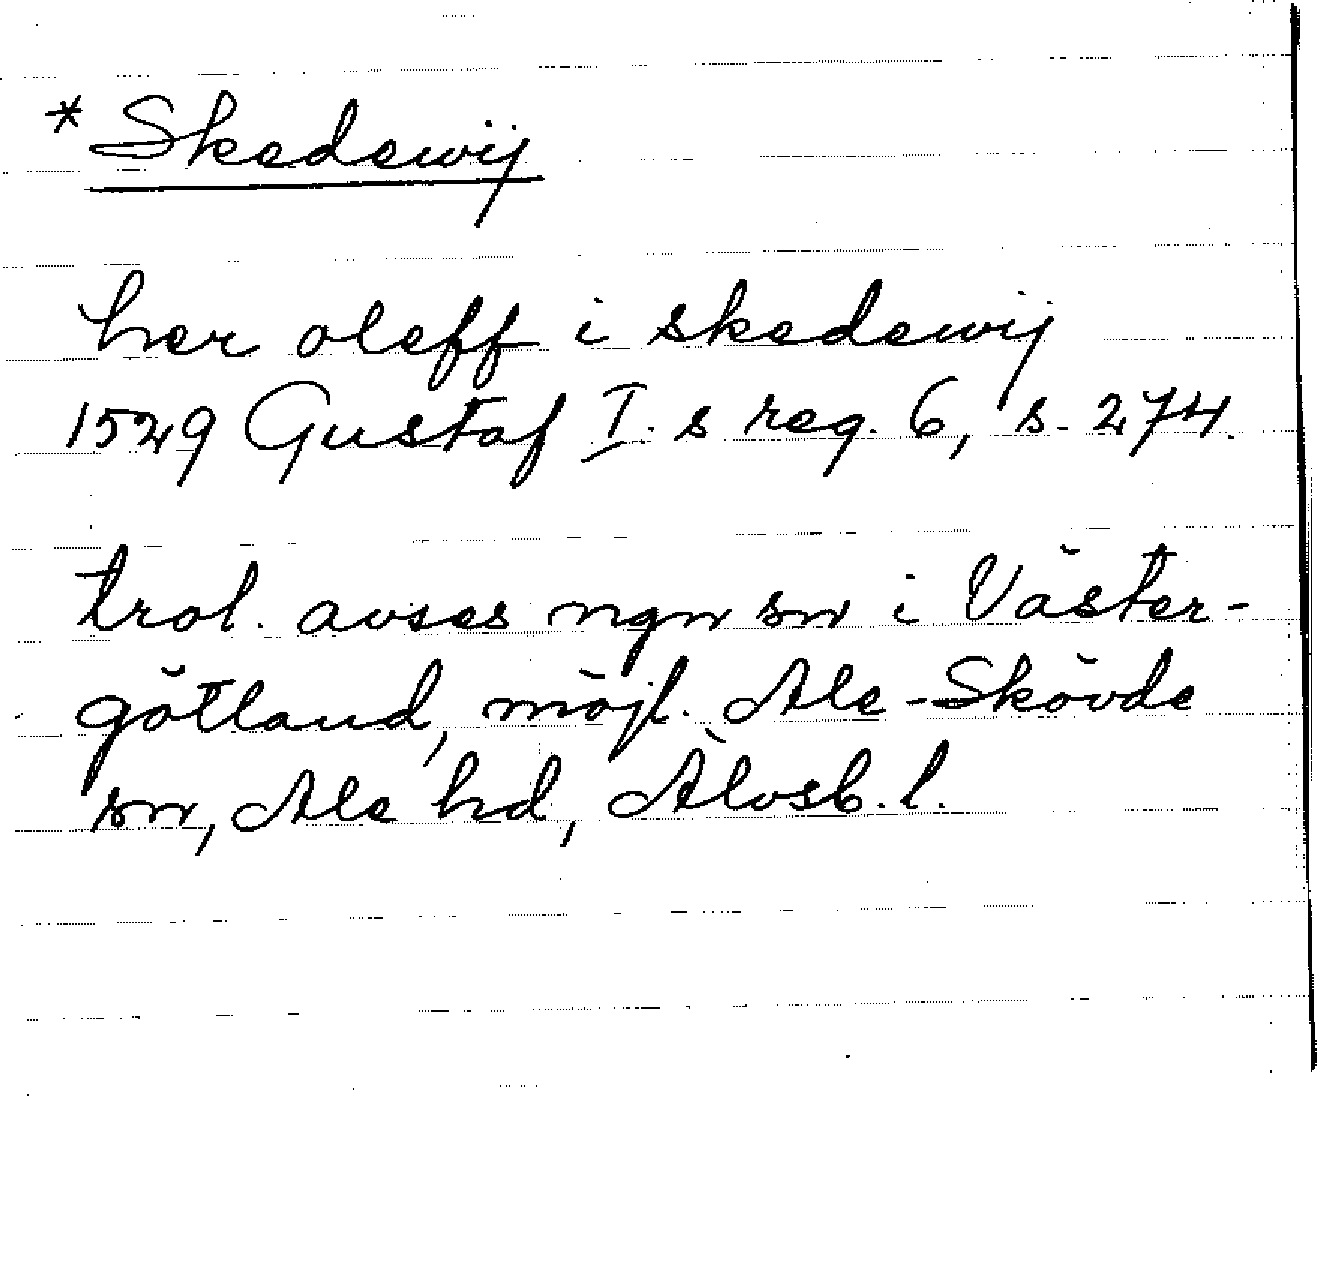 * Skedewij
her oleff i skedewij
1529 Gustaf I.s reg. 6, s. 274.
trol. avses ngn sn i Väster-
götland, möjl. Ale-Skövde
sn, Ale hd, Älvsb. l.